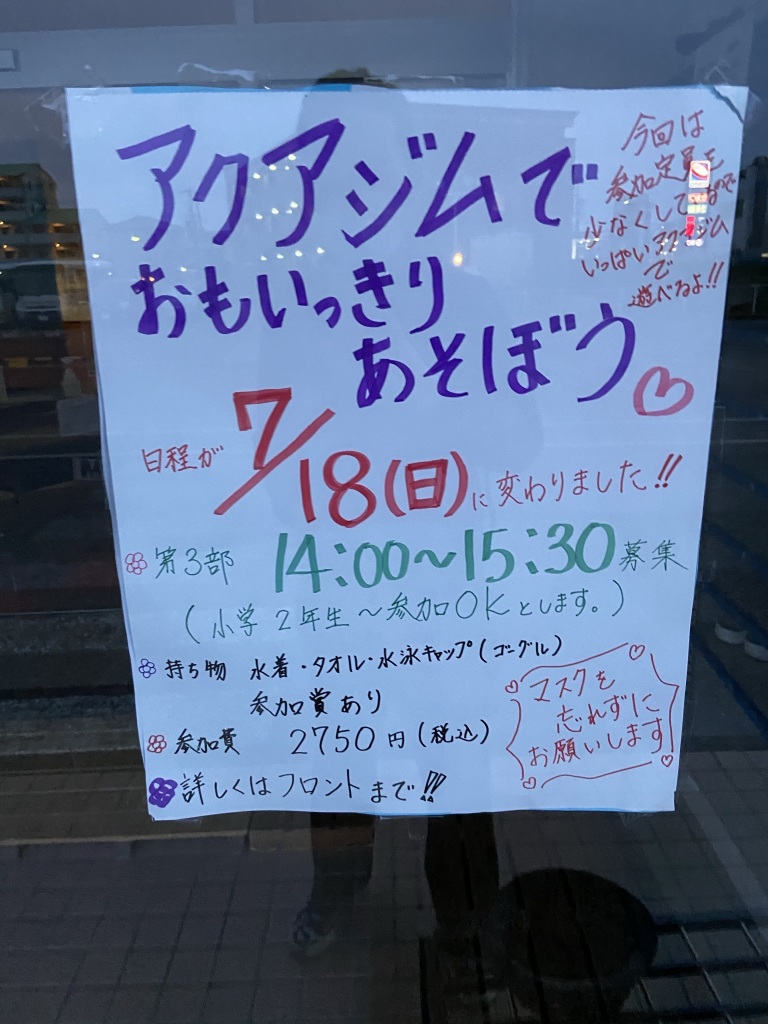 アクアジムで
おもいっきり
あそぼう♡
今回は
参加定員を
少なくしてるので
いっぱいアクアジム
で
遊べるよ!!
日程が 7/18(日)に変わりました!!
第3部 14:00~15:30 募集
(小学2年生~参加OKとします。)
持ち物 水着・タオル・水泳キャップ(ゴーグル)
参加賞あり
参加費 2750円(税込)
マスクを
忘れずに
お願いします
詳しくはフロントまで!!